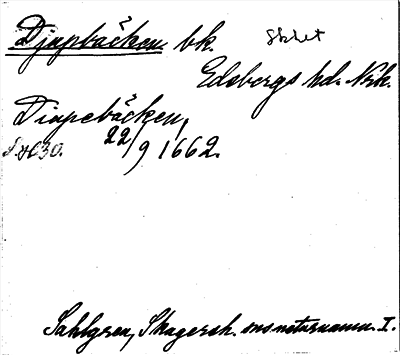 Djupbäcken. bk. Skhet
Edsbergs hd. Nrk.
Diupebäcken,
22/9 1662.
Sahlgren, Skagersh. sns naturnamn. I.